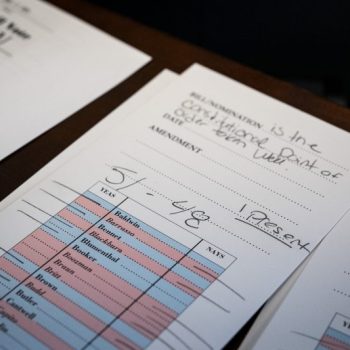 Your
BILL/NOMINATION is the
Constitutional Point of
order
DATE
AMENDMENT
51 - 48
1 Present
YEAS
NAYS
Baldwin
Barrasso
Blackburn
Blumenthal
Booker
Boozman
Braun
Brown
Budd
Butler
Cantwell
YE